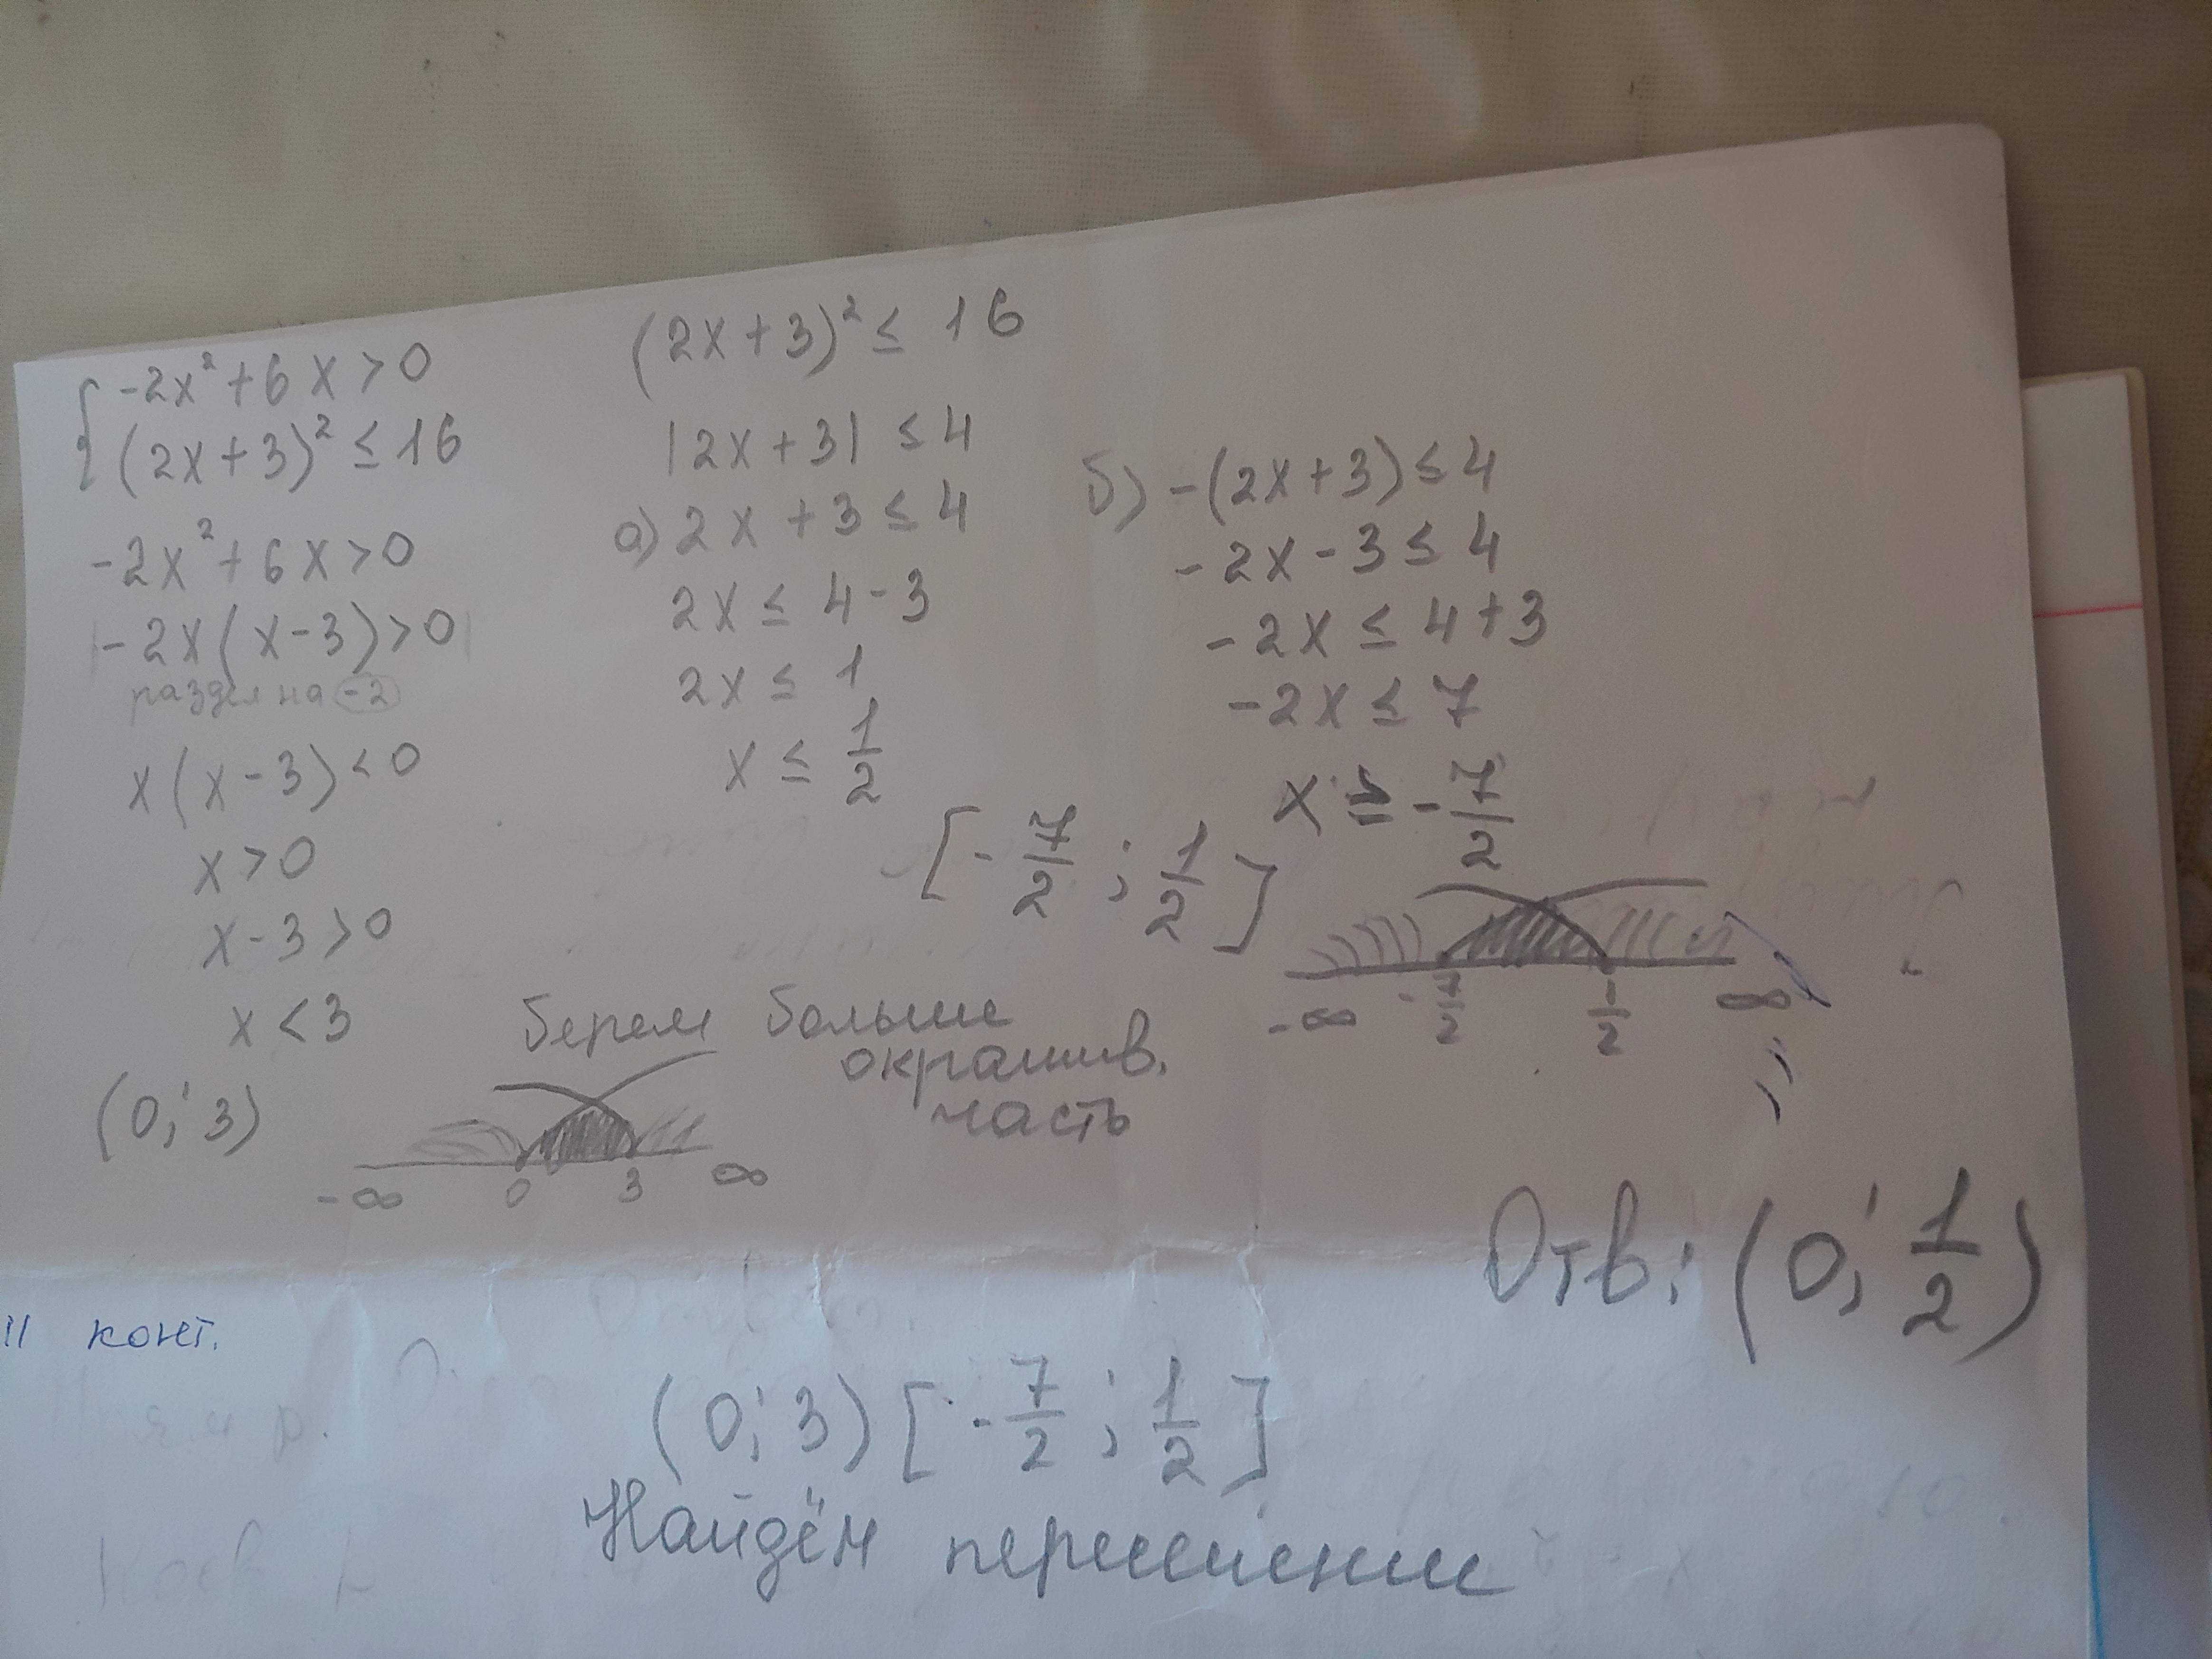 { -2x² + 6x > 0
(2x+3)² ≤ 16
-2x² + 6x > 0
|-2x(x-3) > 0|
раздел на -2
x(x-3) < 0
x > 0
x - 3 > 0
x < 3
(0; 3)
-∞ 0 3 ∞
(2x+3)² ≤ 16
|2x+3| ≤ 4
а) 2x + 3 ≤ 4
2x ≤ 4-3
2x ≤ 1
x ≤ 1/2
б) -(2x+3) ≤ 4
-2x - 3 ≤ 4
-2x ≤ 4+3
-2x ≤ 7
x ≥ -7/2
[-7/2 ; 1/2]
-∞ -7/2 1/2 ∞
берем больше
окрашив.
часть
Отв: (0; 1/2)
11 конт.
(0; 3) [-7/2 ; 1/2]
Найдём